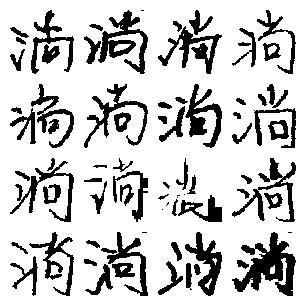 淌淌淌淌
淌淌淌淌
淌淌淌
淌淌淌淌